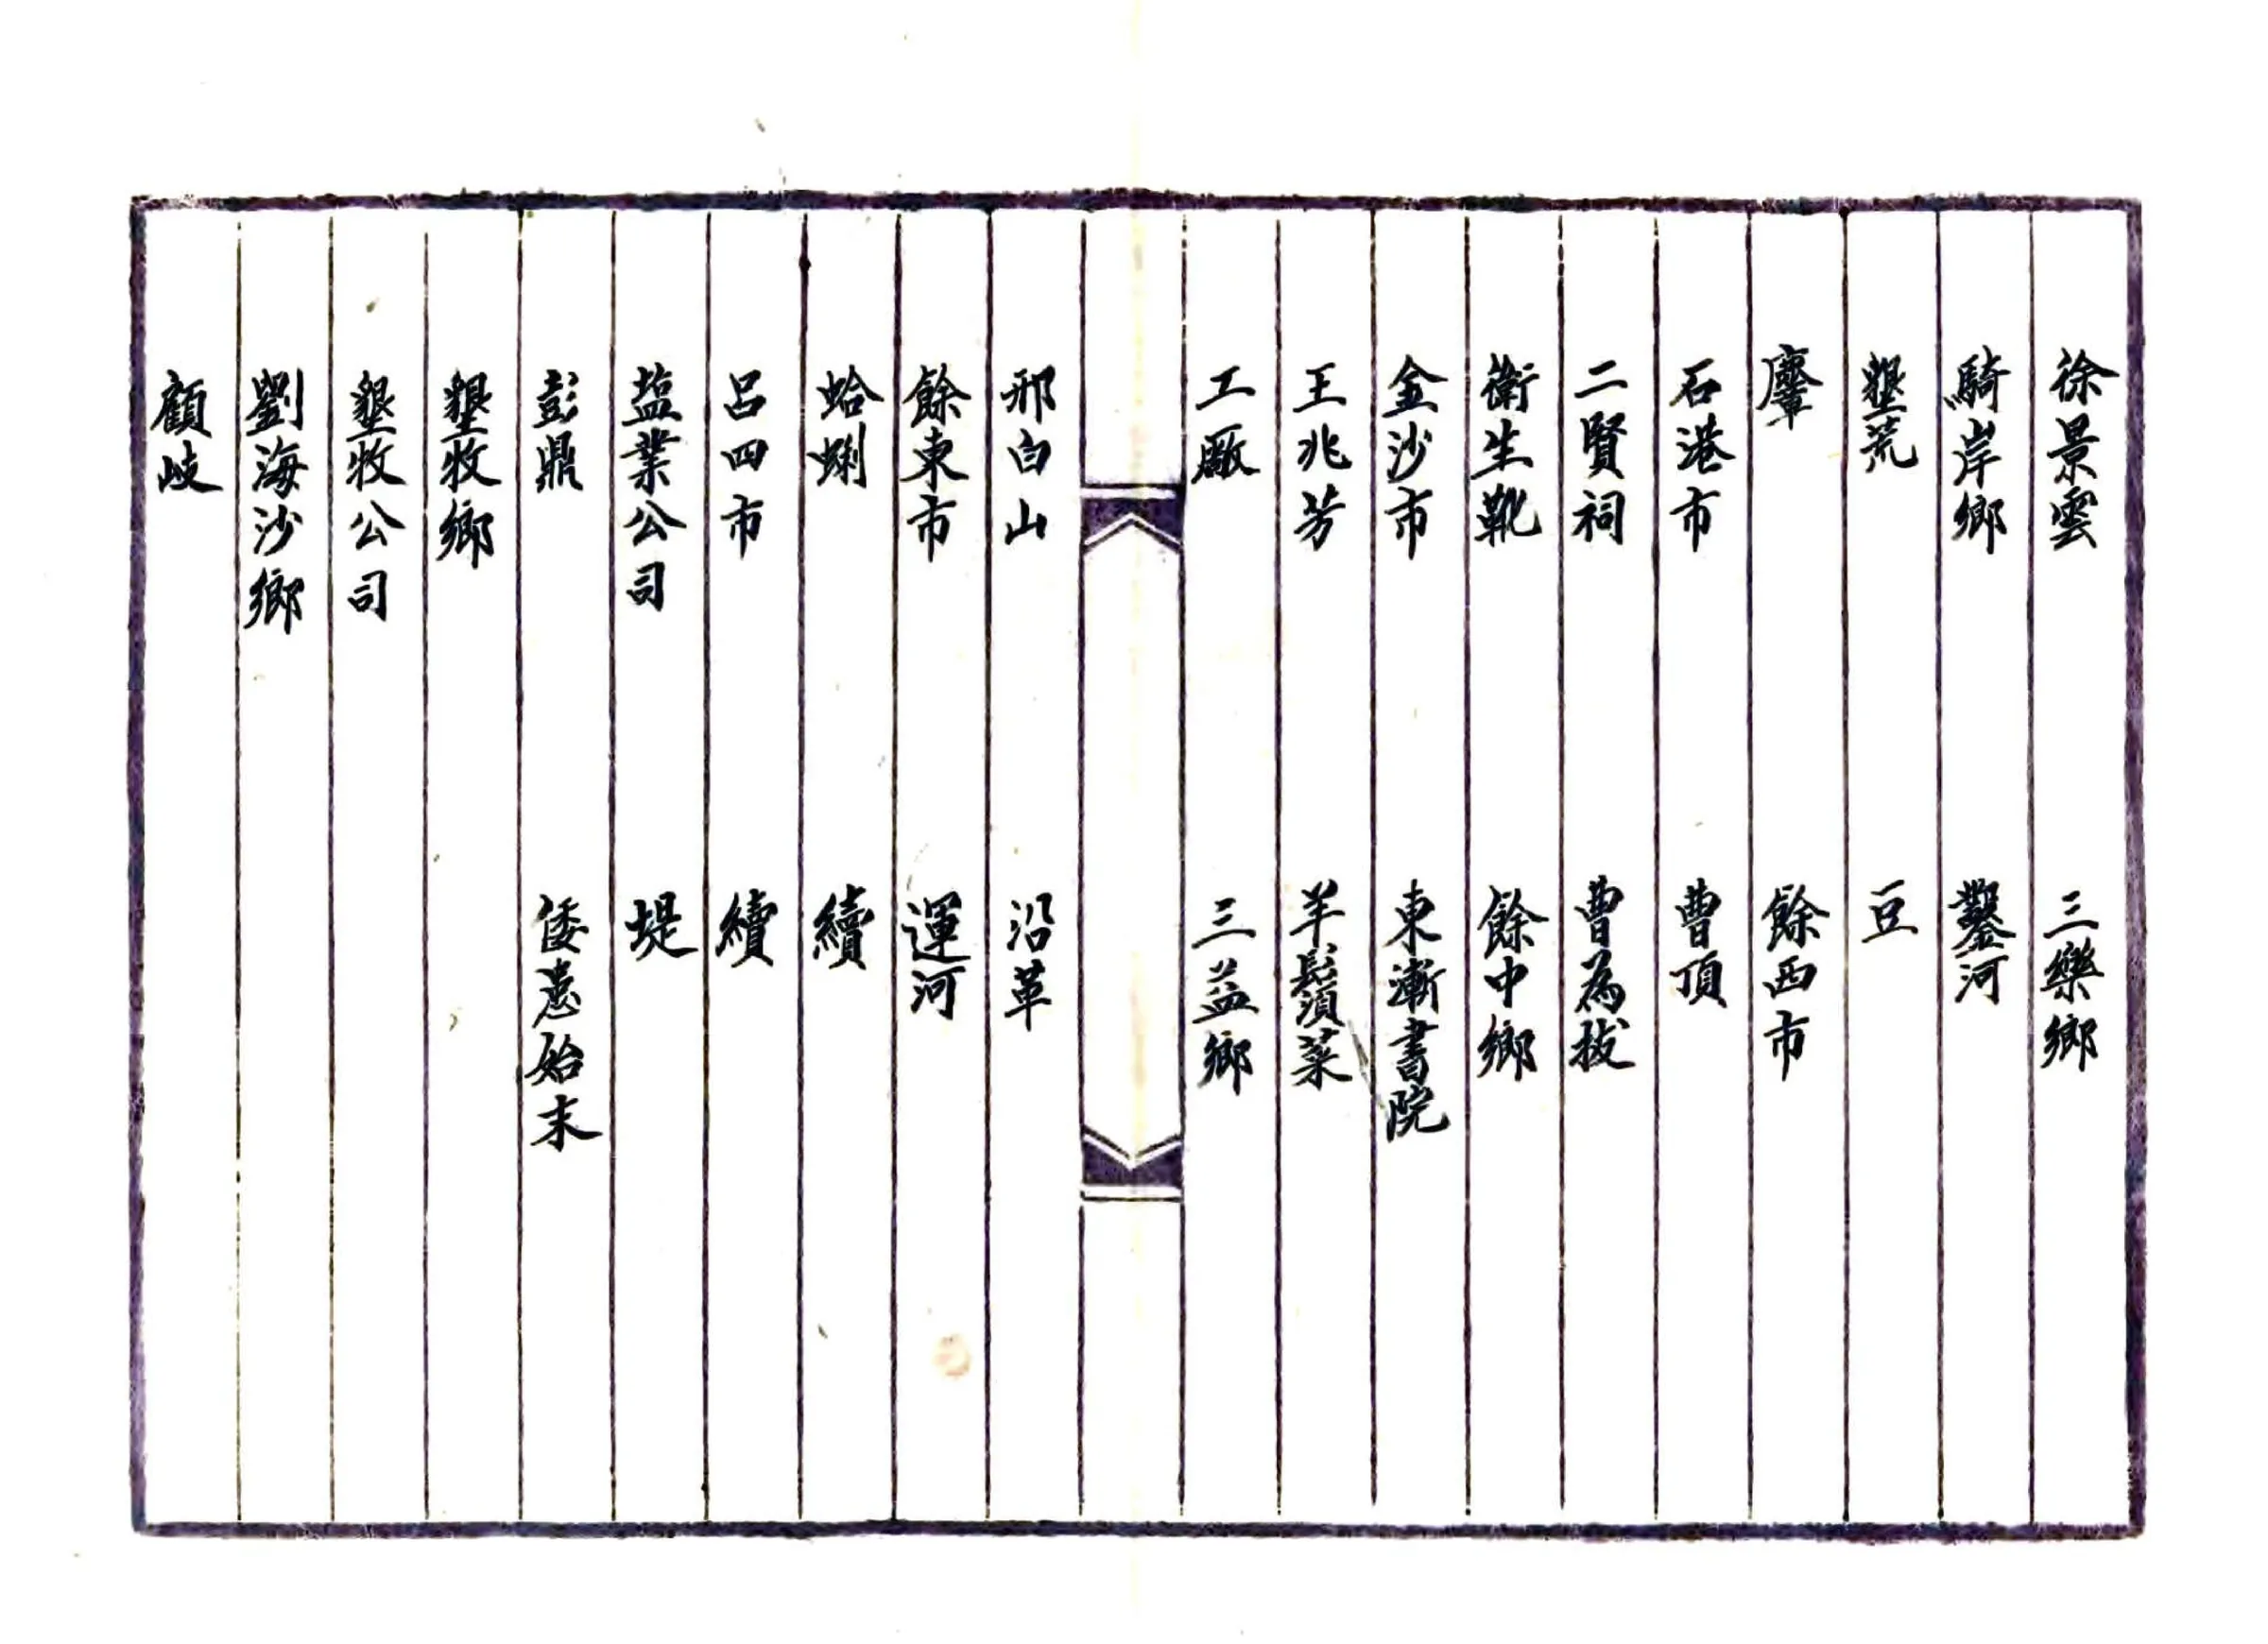 徐景雲　三樂鄉
騎岸鄉　鑿河
墾荒　豆
麞　餘西市
石港市　曹頂
二賢祠　曹為拔
衛生靴　餘中鄉
金沙市　東漸書院
王兆芳　羊鬚菜
工廠　三益鄉
邢白山　沿革
餘東市　運河
蛤蜊　續
呂四市　續
塩業公司　堤
彭鼎　倭患始末
墾牧鄉
墾牧公司
劉海沙鄉
顧岐